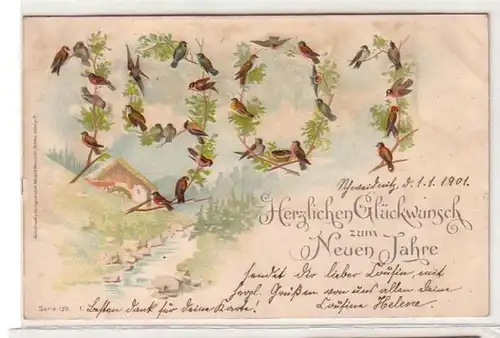 1901
Schweidnitz, d. 1.1.1901.
Herzlichen Glückwunsch
zum
Neuen Jahre
sendet Dir lieber Cousin, mit
herzl. Grüßen von uns allen deine
Cousine Helene.
Serie 129. 1. Besten Dank für deine Karte!